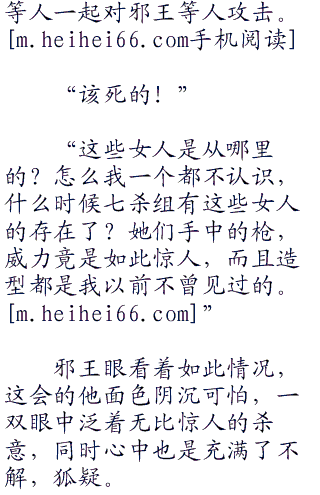 等人一起对邪王等人攻击。
[m.heihei66.com手机阅读]
“该死的！”
“这些女人是从哪里
的？怎么我一个都不认识，
什么时候七杀组有这些女人
的存在了？她们手中的枪，
威力竟是如此惊人，而且造
型都是我以前不曾见过的。
[m.heihei66.com]”
邪王眼看着如此情况，
这会的他面色阴沉可怕，一
双眼中泛着无比惊人的杀
意，同时心中也是充满了不
解，狐疑。